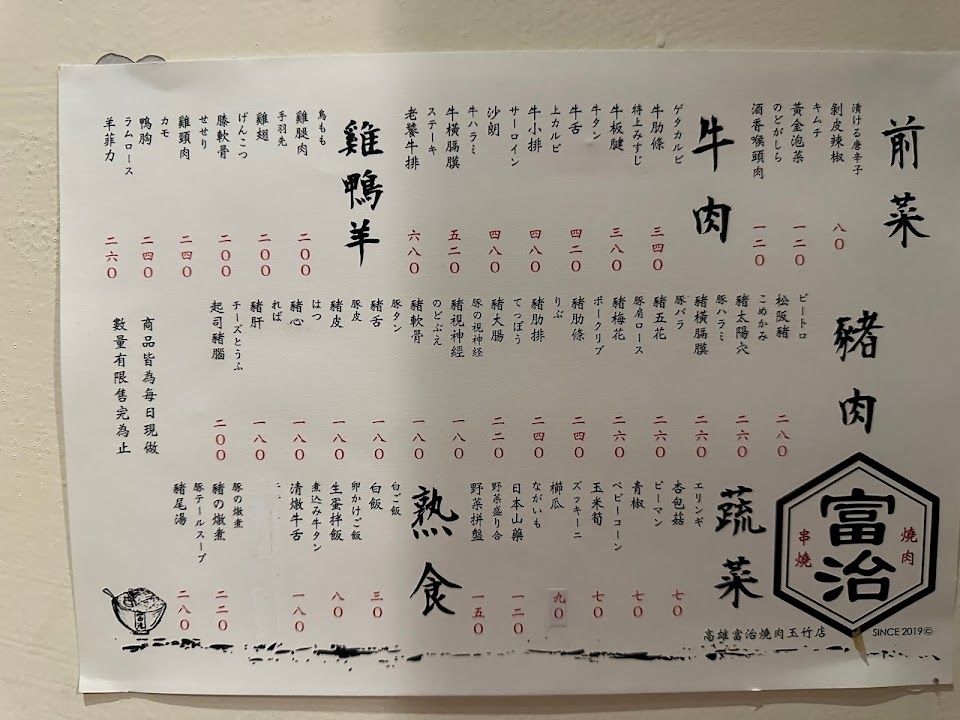 前菜
漬ける唐辛子
剝皮辣椒
八〇
キムチ
黃金泡菜
一二〇
のどがしら
酒香喉頭肉
一二〇
牛肉
ゲタカルビ
牛肋條
三四〇
特上みすじ
牛板腱
三八〇
牛タン
牛舌
四二〇
上カルビ
牛小排
四八〇
サーロイン
沙朗
四八〇
牛ハラミ
牛橫膈膜
五二〇
ステーキ
老饕牛排
六八〇
雞鴨羊
鳥もも
雞腿肉
二〇〇
手羽先
雞翅
二〇〇
げんこつ
膝軟骨
二〇〇
せせり
雞頸肉
二四〇
カモ
鴨胸
二四〇
ラムロース
羊菲力
二六〇
豬肉
ピートロ
松阪豬
二八〇
こめかみ
豬太陽穴
二六〇
豚ハラミ
豬橫膈膜
二六〇
豚バラ
豬五花
二六〇
豚肩ロース
豬梅花
二六〇
ポークリブ
豬肋條
二四〇
りぶ
豬肋排
二四〇
てっぽう
豬大腸
二二〇
豚の視神経
豬視神經
一八〇
のどぶえ
豬軟骨
一八〇
豚タン
豬舌
一八〇
豚皮
豬皮
一八〇
はつ
豬心
一八〇
れば
豬肝
一八〇
チーズとうふ
起司豬腦
二〇〇
商品皆為每日現做
數量有限售完為止
蔬菜
エリンギ
杏包菇
七〇
ピーマン
青椒
七〇
ベビーコーン
玉米筍
七〇
ズッキーニ
櫛瓜
九〇
ながいも
日本山藥
一二〇
野菜盛り合
野菜拼盤
一五〇
熟食
白ご飯
白飯
三〇
卵かけご飯
生蛋拌飯
八〇
煮込み牛タン
清燉牛舌
一八〇
豚の燉煮
豬の燉煮
二二〇
豚テールスープ
豬尾湯
二八〇
燒肉
富治
串燒
高雄富治燒肉玉竹店
SINCE 2019©
富治